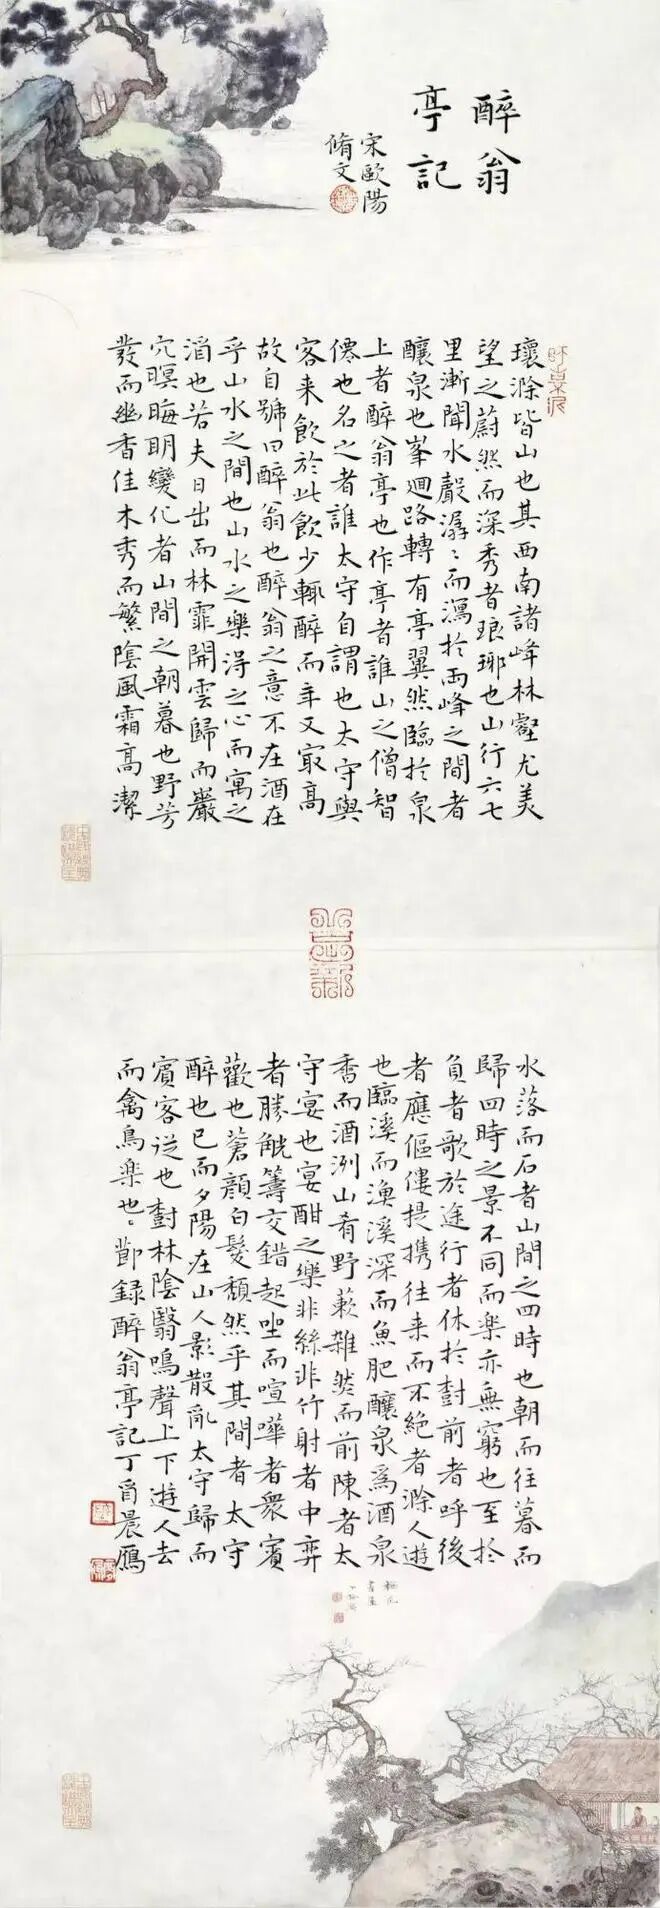 醉翁
亭記
宋歐陽
脩文
瓌滁皆山也其西南諸峰林壑尤美
望之蔚然而深秀者琅琊也山行六七
里漸聞水聲潺〻而瀉於兩峰之間者
釀泉也峯迴路轉有亭翼然臨於泉
上者醉翁亭也作亭者誰山之僧智
僊也名之者誰太守自謂也太守與
客来飲於此飲少輒醉而年又冣高
故自號曰醉翁也醉翁之意不在酒在
乎山水之間也山水之樂得之心而寓之
酒也若夫日出而林霏開雲歸而巖
穴暝晦明變化者山間之朝暮也野芳
發而幽香佳木秀而繁陰風霜高潔
水落而石者山間之四時也朝而往暮而
歸四時之景不同而樂亦無窮也至於
負者歌於途行者休於樹前者呼後
者應傴僂提攜往来而不絕者滁人遊
也臨溪而漁溪深而魚肥釀泉爲酒泉
香而酒洌山肴野蔌雜然而前陳者太
守宴也宴酣之樂非絲非竹射者中弈
者勝觥籌交錯起坐而喧嘩者衆賓
歡也蒼顏白髮頹然乎其間者太守
醉也已而夕陽在山人影散亂太守歸而
賓客從也樹林陰翳鳴聲上下遊人去
而禽鳥樂也。節錄醉翁亭記丁酉晨鴈